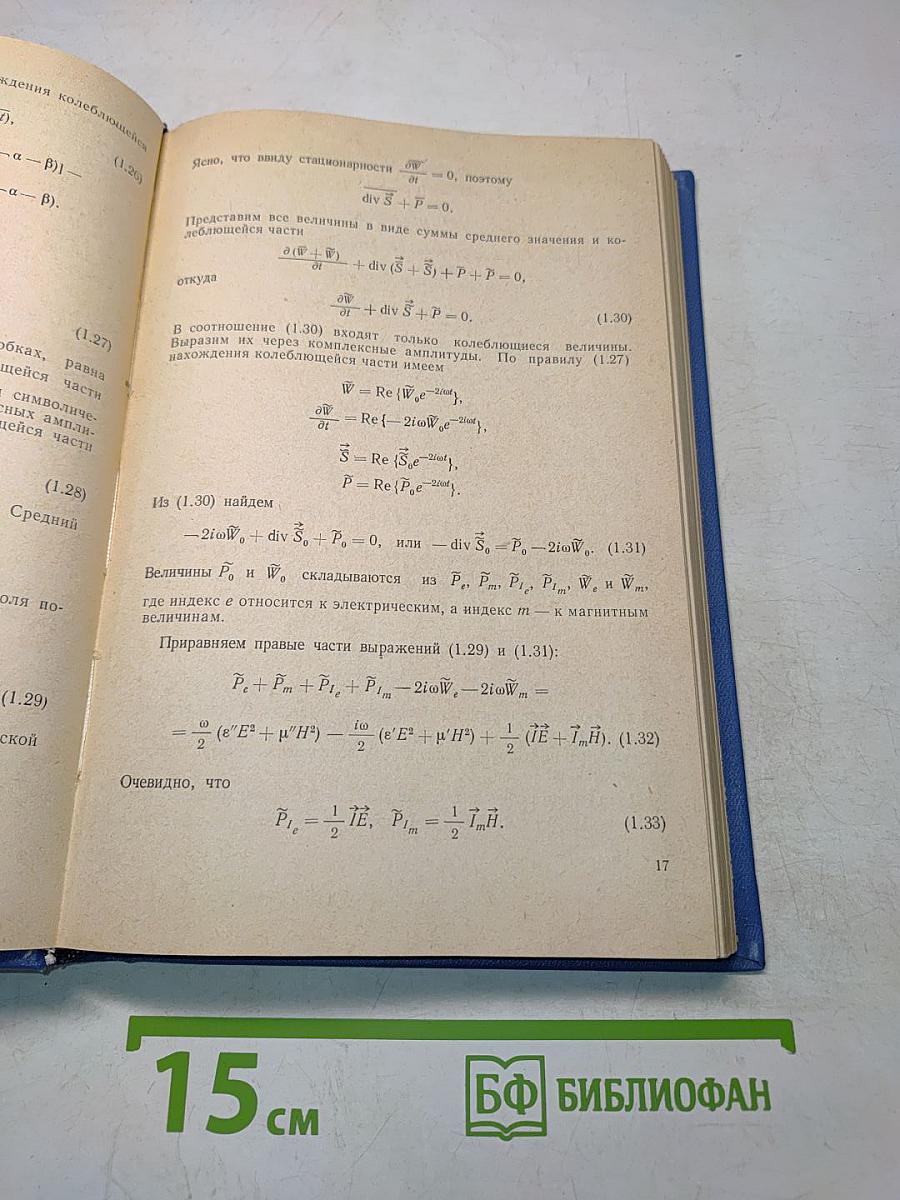 ждения колеблющейся
t),
(1.26)
— α — β)] —
— α — β).
(1.27)
обках, равна
щейся части
символиче-
сных ампли-
щейся части
(1.28)
Средний
оля по-
(1.29)
ской
Ясно, что ввиду стационарности ∂W̅/∂t = 0, поэтому
div S⃗ + P̅ = 0.
Представим все величины в виде суммы среднего значения и ко-
леблющейся части
∂(W̅ + W̃)/∂t + div (S̅⃗ + S̃⃗) + P̅ + P̃ = 0,
откуда
∂W̃/∂t + div S̃⃗ + P̃ = 0. (1.30)
В соотношение (1.30) входят только колеблющиеся величины.
Выразим их через комплексные амплитуды. По правилу (1.27)
нахождения колеблющейся части имеем
W̃ = Re {W̃₀e^{−2iωt}},
∂W̃/∂t = Re {— 2iωW̃₀e^{−2iωt}},
S̃⃗ = Re {S̃⃗₀e^{−2iωt}},
P̃ = Re {P̃₀e^{−2iωt}}.
Из (1.30) найдем
— 2iωW̃₀ + div S̃⃗₀ + P̃₀ = 0, или — div S̃⃗₀ = P̃₀ — 2iωW̃₀. (1.31)
Величины P̃₀ и W̃₀ складываются из P̃ₑ, P̃ₘ, P̃_{Iₑ}, P̃_{Iₘ}, W̃ₑ и W̃ₘ,
где индекс e относится к электрическим, а индекс m — к магнитным
величинам.
Приравняем правые части выражений (1.29) и (1.31):
P̃ₑ + P̃ₘ + P̃_{Iₑ} + P̃_{Iₘ} — 2iωW̃ₑ — 2iωW̃ₘ =
= ω/2 (ε″E² + μ″H²) — iω/2 (ε′E² + μ′H²) + 1/2 (I⃗E⃗ + I⃗ₘH⃗). (1.32)
Очевидно, что
P̃_{Iₑ} = 1/2 I⃗E⃗, P̃_{Iₘ} = 1/2 I⃗ₘH⃗. (1.33)
17
15 см
БФ БИБЛИОФАН